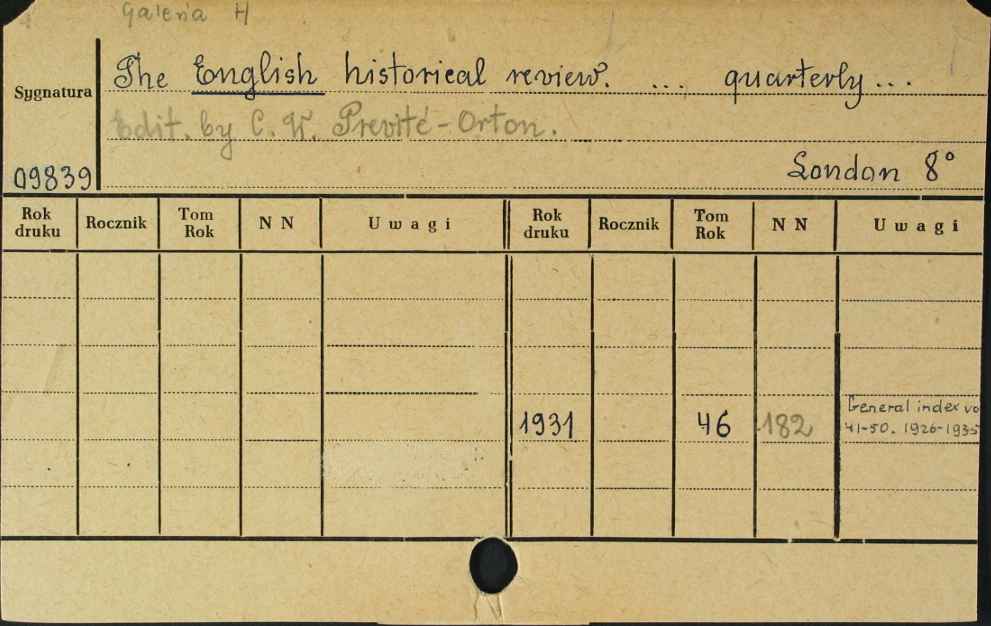 Galeria H
The English historical review. ... quarterly ...
Sygnatura
Edit. by C. W. Previté-Orton.
09839
London 8°
Rok druku Rocznik Tom Rok N N Uwagi Rok druku Rocznik Tom Rok N N Uwagi
General index vo
1931 46 182 41-50. 1926-1935